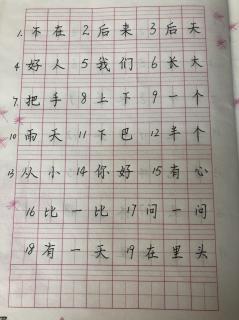 1. 不在 2 后来 3 后天
4 好人 5 我们 6 长大
7. 把手 8 上下 9 一个
10 雨天 11 下巴 12 半个
13 从小 14 你好 15 有心
16 比一比 17 问一问
18 有一天 19 在里头